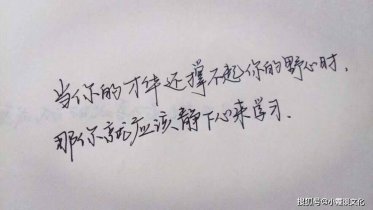 当你的才华还撑不起你的野心时，
那你就应该静下心来学习．
搜狐号@小霞谈文化